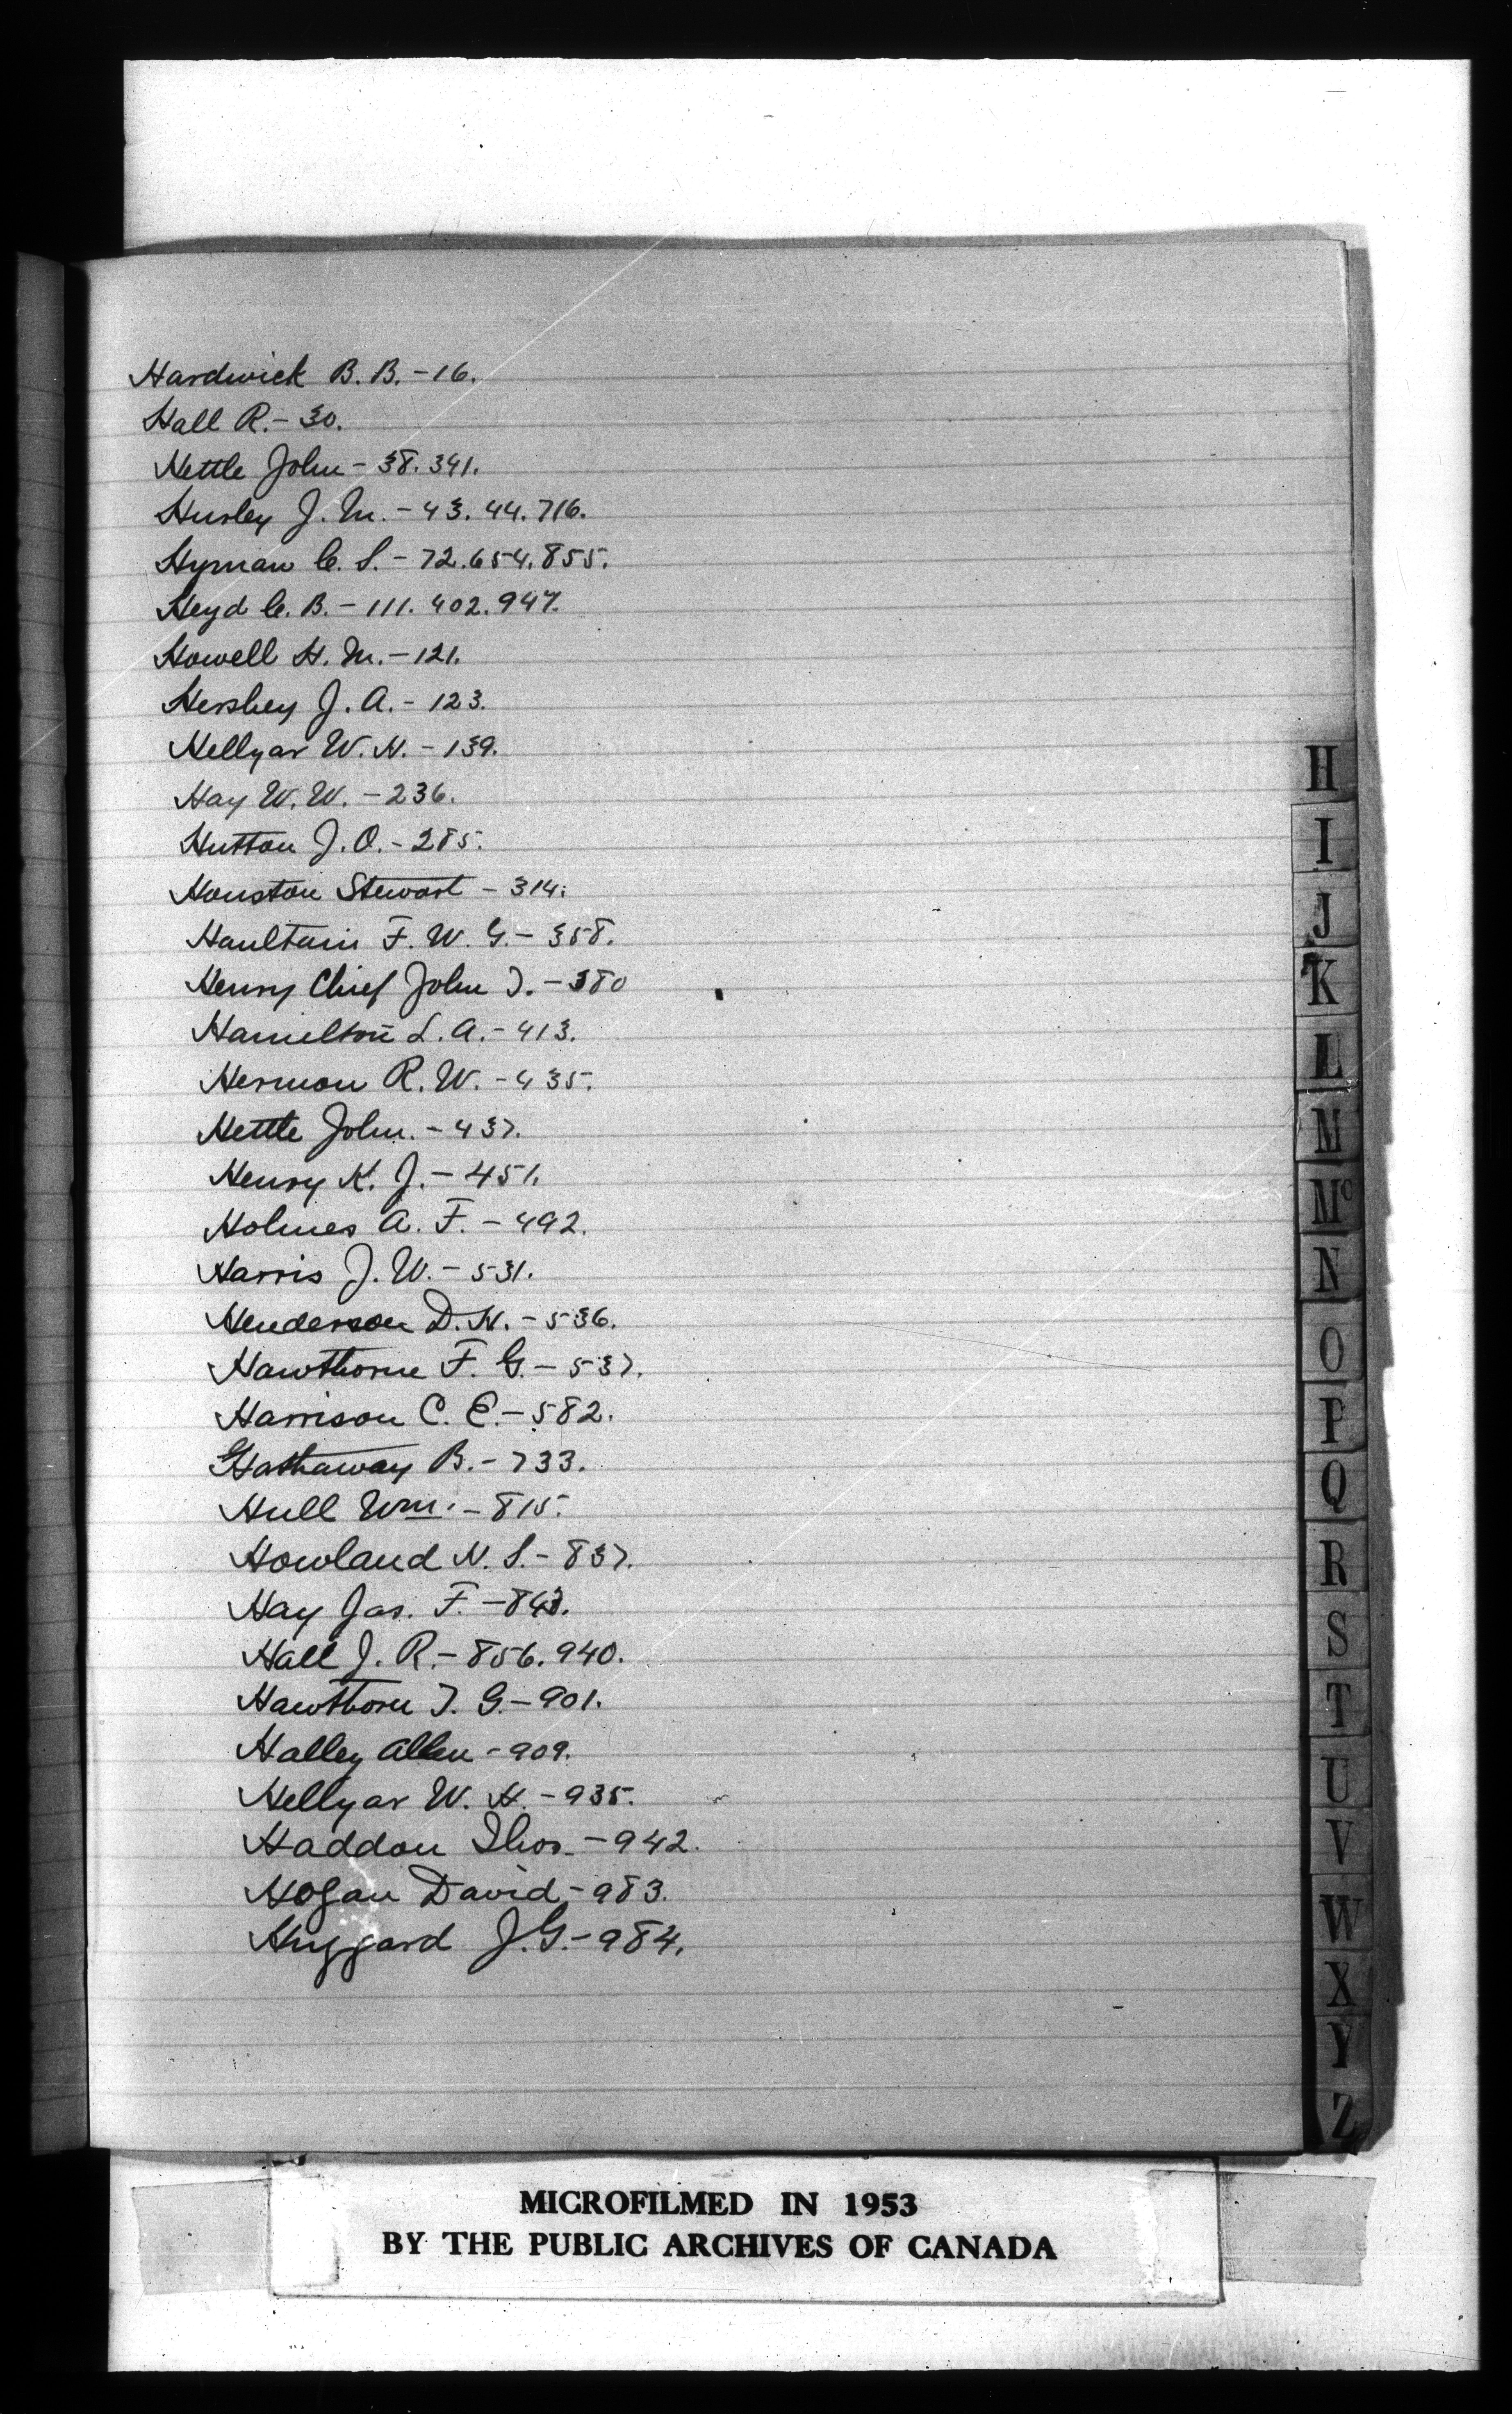 Hardwick B. B. - 16.
Hall R. - 30.
Hettle John - 38. 341.
Hurley J. M. - 43. 44. 716.
Hyman C. S. - 72. 654. 855.
Heyd C. B. - 111. 402. 947.
Howell H. M. - 121.
Hershey J. A. - 123.
Hellyar W. H. - 139.
Hay W. W. - 236.
Hutton J. O. - 285.
Houston Stewart - 314.
Haultain F. W. G. - 358.
Henry Chief John T. - 380
Hamelton L. A. - 413.
Hermon R. W. - 435.
Hettle John. - 437.
Henry K. J. - 451.
Holmes A. F. - 492.
Harris J. W. - 531.
Henderson D. H. - 536.
Hawthorne F. G. - 537.
Harrison C. E. - 582.
Hathaway B. - 733.
Hull Wm. - 815.
Howland N. S. - 837.
Hay Jas. F. - 843.
Hall J. R. - 856. 940.
Hawthorn T. G. - 901.
Halley Allen - 909.
Hellyar W. H. - 935.
Haddon Thos. - 942.
Hogan David - 983.
Huggard J. G. - 984.
H
I
J
K
L
M
Mc
N
O
P
Q
R
S
T
U
V
W
X
Y
Z
MICROFILMED IN 1953
BY THE PUBLIC ARCHIVES OF CANADA